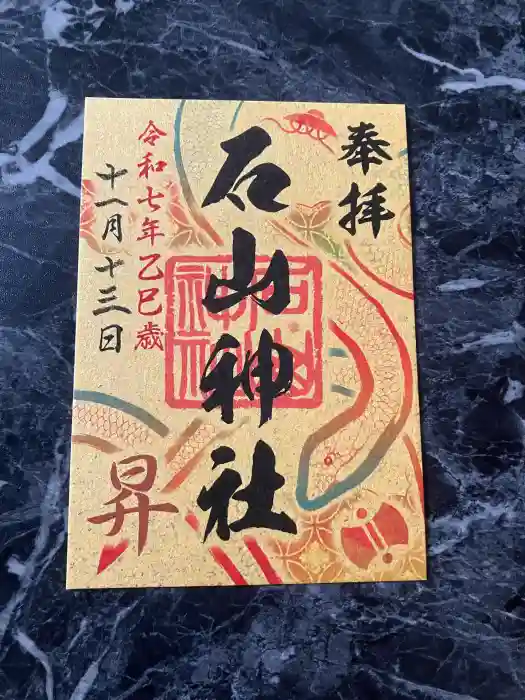 奉拝
石山神社
石山神社
令和七年乙巳歳
十一月十三日
昇